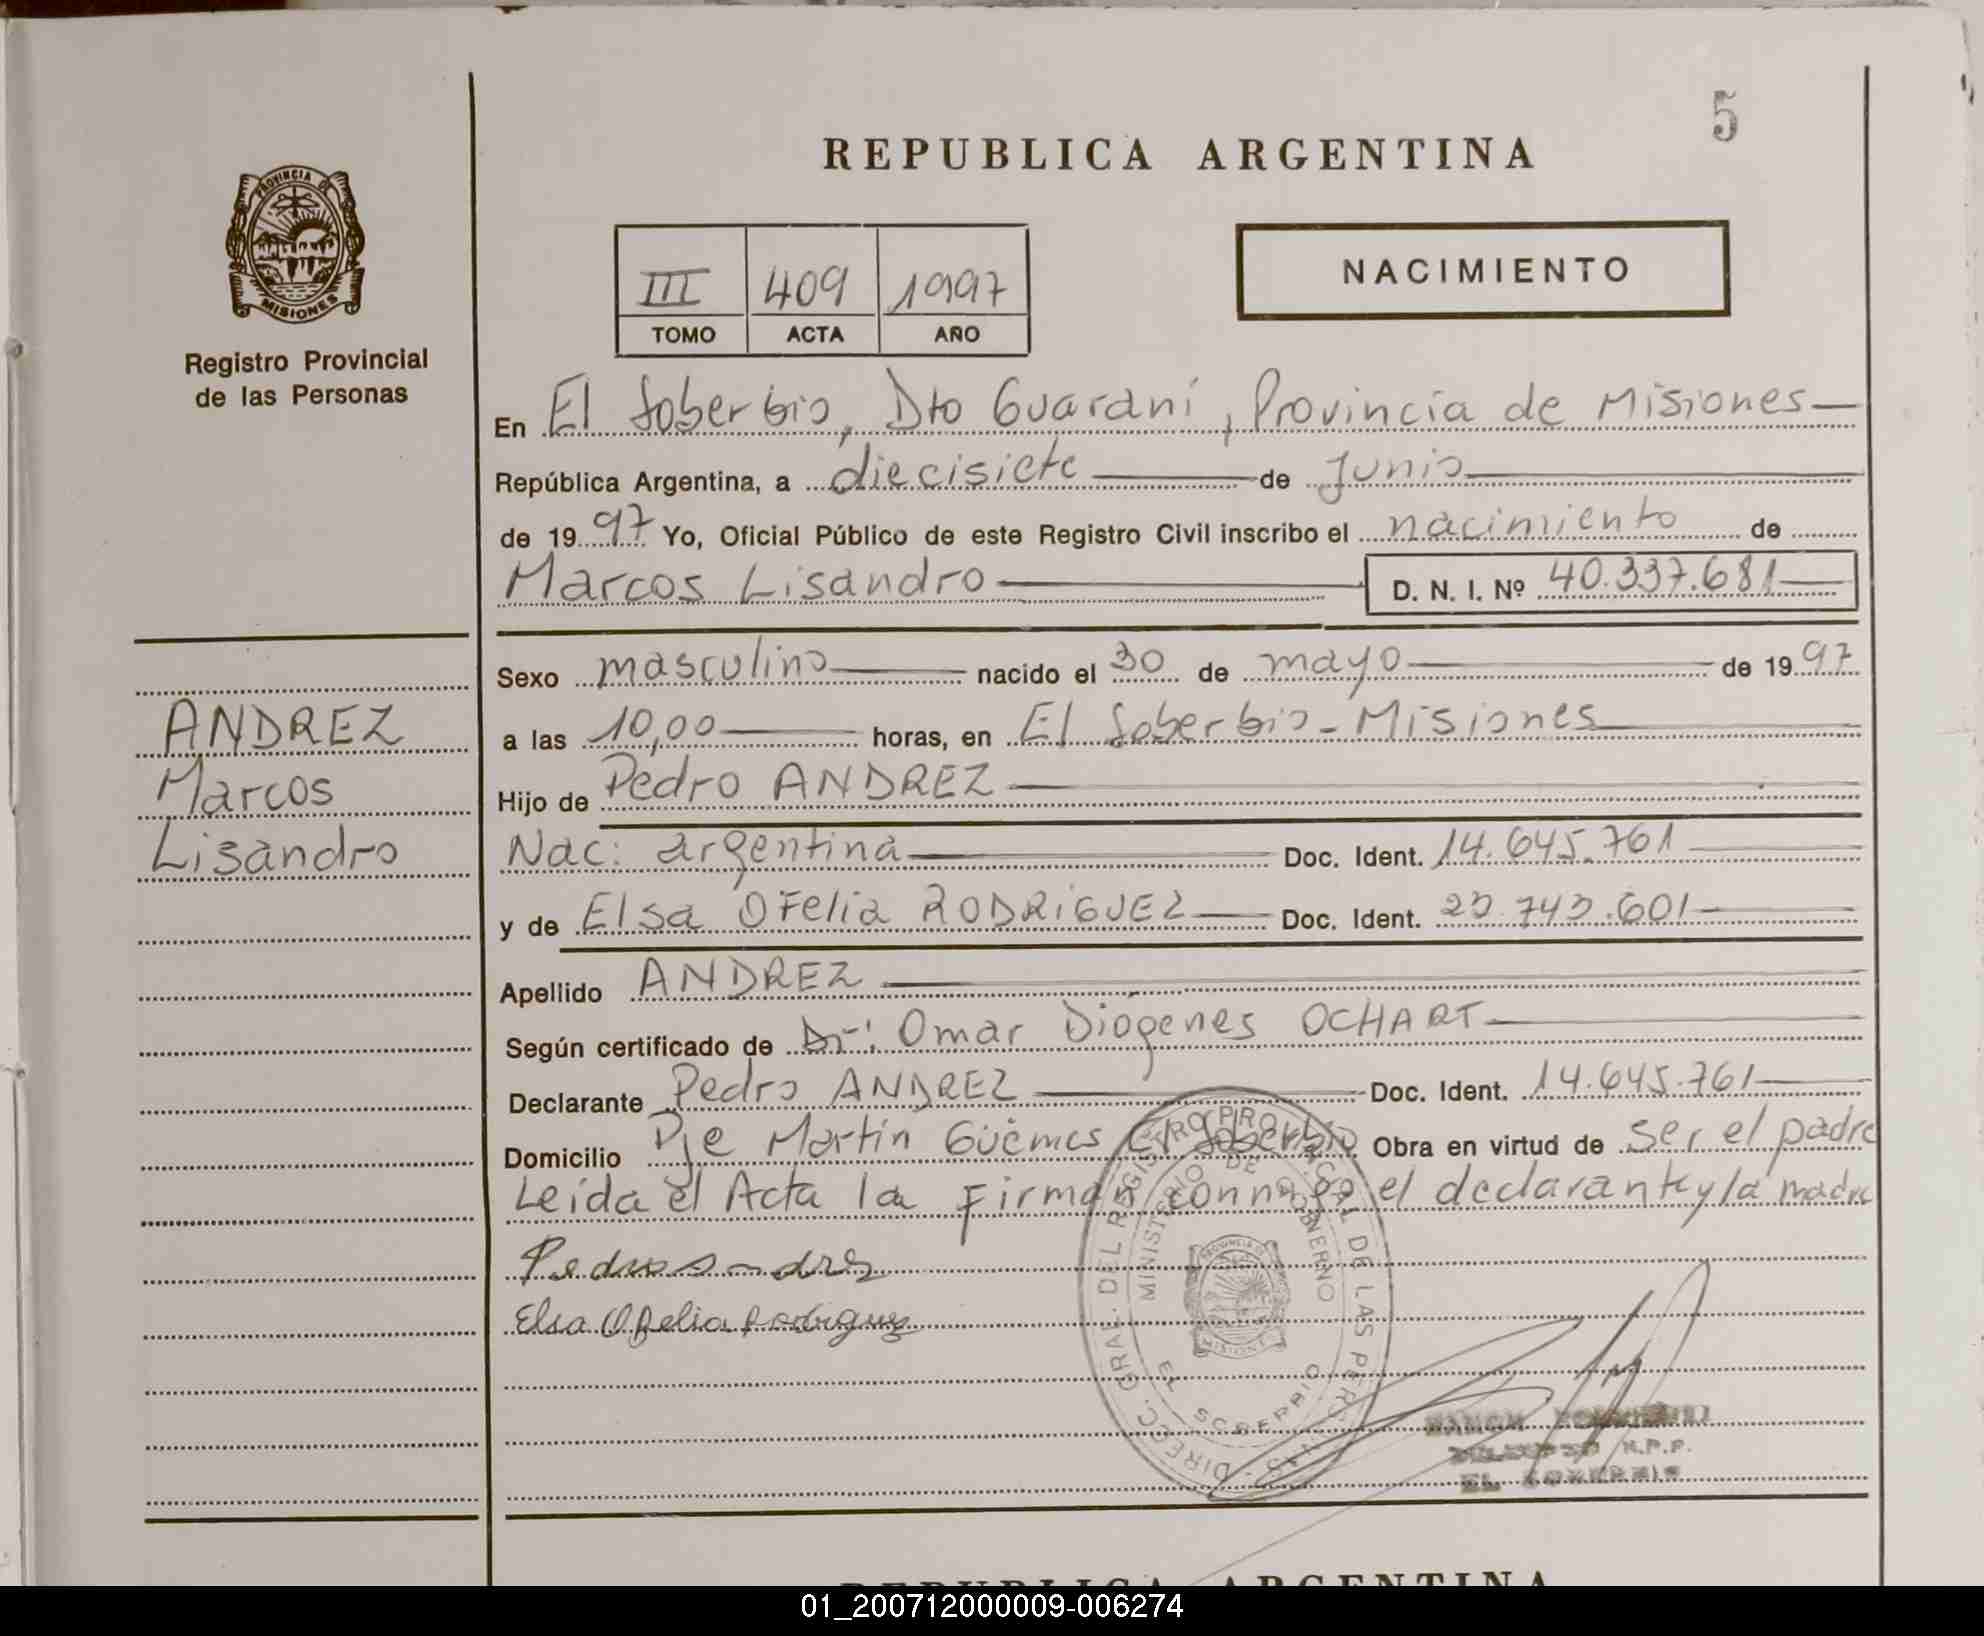 5
REPUBLICA ARGENTINA
PROVINCIA DE
MISIONES
Registro Provincial
de las Personas
III 409 1997
TOMO ACTA AÑO
NACIMIENTO
En El Soberbio, Dto Guaraní, Provincia de Misiones
República Argentina, a diecisiete de Junio
de 1997 Yo, Oficial Público de este Registro Civil inscribo el nacimiento de
Marcos Lisandro D. N. I. Nº 40.337.681
Sexo masculino nacido el 30 de mayo de 1997
a las 10,00 horas, en El Soberbio - Misiones
Hijo de Pedro ANDREZ
Nac: argentina Doc. Ident. 14.645.761
y de Elsa Ofelia RODRIGUEZ Doc. Ident. 23.743.601
Apellido ANDREZ
Según certificado de Dr: Omar Diógenes OCHART
Declarante Pedro ANDREZ Doc. Ident. 14.645.761
Domicilio Pje Martín Güemes El Soberbio Obra en virtud de ser el padre
Leída el Acta la Firman conmigo el declarante y la madre
ANDREZ
Marcos
Lisandro
Pedro Andrez
Elsa Ofelia Rodriguez
DIRECC. GRAL. DEL REGISTRO PROVINCIAL DE LAS PERSONAS
MINISTERIO DE GOBIERNO
EL SOBERBIO
R.P.P.
EL SOBERBIO
REPUBLICA ARGENTINA
01_200712000009-006274